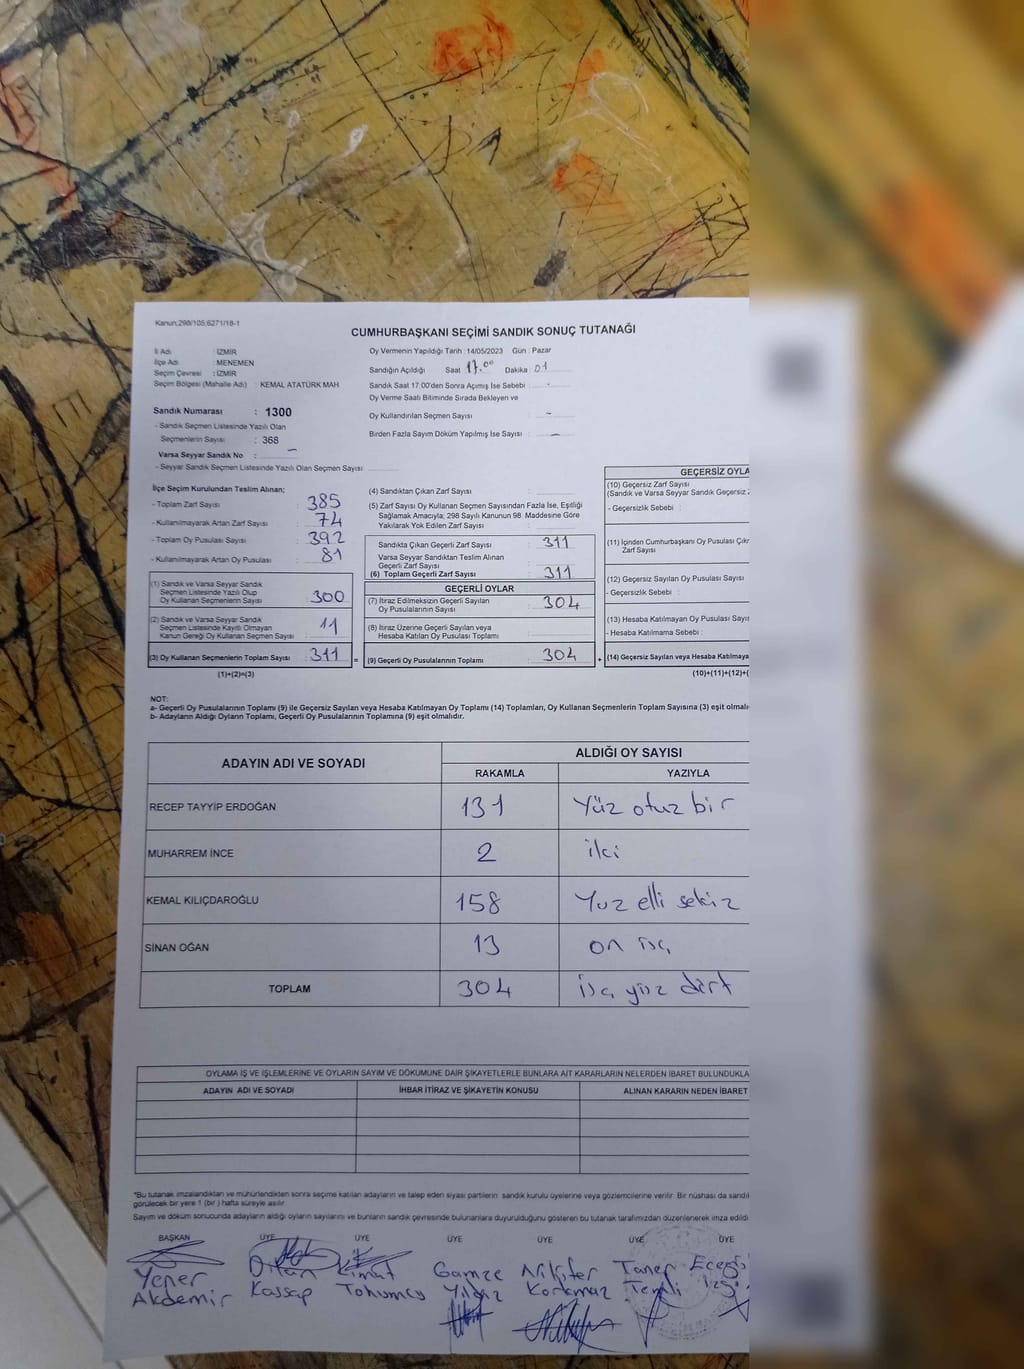 Kanun;298/105;6271/18-1
CUMHURBAŞKANI SEÇİMİ SANDIK SONUÇ TUTANAĞI
İl Adı : İZMİR
İlçe Adı : MENEMEN
Seçim Çevresi : İZMİR
Seçim Bölgesi (Mahalle Adı) : KEMAL ATATÜRK MAH
Sandık Numarası : 1300
- Sandık Seçmen Listesinde Yazılı Olan
Seçmenlerin Sayısı : 368
Varsa Seyyar Sandık No : –
- Seyyar Sandık Seçmen Listesinde Yazılı Olan Seçmen Sayısı
Oy Vermenin Yapıldığı Tarih : 14/05/2023 Gün : Pazar
Sandığın Açıldığı Saat 17.00 Dakika 01
Sandık Saat 17.00'den Sonra Açımış İse Sebebi : -
Oy Verme Saati Bitiminde Sırada Bekleyen ve
Oy Kullandırılan Seçmen Sayısı : –
Birden Fazla Sayım Döküm Yapılmış İse Sayısı : –
İlçe Seçim Kurulundan Teslim Alınan;
- Toplam Zarf Sayısı : 385
- Kullanılmayarak Artan Zarf Sayısı : 74
- Toplam Oy Pusulası Sayısı : 392
- Kullanılmayarak Artan Oy Pusulası : 81
(1) Sandık ve Varsa Seyyar Sandık
Seçmen Listesinde Yazılı Olup
Oy Kullanan Seçmenlerin Sayısı : 300
(2) Sandık ve Varsa Seyyar Sandık
Seçmen Listesinde Kayıtlı Olmayan
Kanun Gereği Oy Kullanan Seçmen Sayısı : 11
(3) Oy Kullanan Seçmenlerin Toplam Sayısı : 311 =
(1)+(2)=(3)
(4) Sandıktan Çıkan Zarf Sayısı :
(5) Zarf Sayısı Oy Kullanan Seçmen Sayısından Fazla İse, Eşitliği
Sağlamak Amacıyla; 298 Sayılı Kanunun 98. Maddesine Göre
Yakılarak Yok Edilen Zarf Sayısı :
Sandıkta Çıkan Geçerli Zarf Sayısı : 311
Varsa Seyyar Sandıktan Teslim Alınan
Geçerli Zarf Sayısı :
(6) Toplam Geçerli Zarf Sayısı : 311
GEÇERLİ OYLAR
(7) İtiraz Edilmeksizin Geçerli Sayılan
Oy Pusulalarının Sayısı : 304
(8) İtiraz Üzerine Geçerli Sayılan veya
Hesaba Katılan Oy Pusulası Toplamı :
(9) Geçerli Oy Pusulalarının Toplamı : 304 +
GEÇERSİZ OYLA
(10) Geçersiz Zarf Sayısı
(Sandık ve Varsa Seyyar Sandık Geçersiz
- Geçersizlik Sebebi :
(11) İçinden Cumhurbaşkanı Oy Pusulası Çık
Zarf Sayısı
(12) Geçersiz Sayılan Oy Pusulası Sayısı
- Geçersizlik Sebebi :
(13) Hesaba Katılmayan Oy Pusulası Sayıs
- Hesaba Katılmama Sebebi :
(14) Geçersiz Sayılan veya Hesaba Katılmaya
(10)+(11)+(12)+(
NOT:
a- Geçerli Oy Pusulalarının Toplamı (9) ile Geçersiz Sayılan veya Hesaba Katılmayan Oy Toplamı (14) Toplamları, Oy Kullanan Seçmenlerin Toplam Sayısına (3) eşit olmalı
b- Adayların Aldığı Oyların Toplamı, Geçerli Oy Pusulalarının Toplamına (9) eşit olmalıdır.
ADAYIN ADI VE SOYADI ALDIĞI OY SAYISI
RAKAMLA YAZIYLA
RECEP TAYYİP ERDOĞAN 131 Yüz otuz bir
MUHARREM İNCE 2 iki
KEMAL KILIÇDAROĞLU 158 Yuz elli sekiz
SİNAN OĞAN 13 on üç
TOPLAM 304 üç yüz dört
OYLAMA İŞ VE İŞLEMLERİNE VE OYLARIN SAYIM VE DÖKÜMÜNE DAİR ŞİKAYETLERLE BUNLARA AİT KARARLARIN NELERDEN İBARET BULUNDUKLA
ADAYIN ADI VE SOYADI İHBAR İTİRAZ VE ŞİKAYETİN KONUSU ALINAN KARARIN NEDEN İBARET
*Bu tutanak imzalandıktan ve mühürlendikten sonra seçime katılan adayların ve talep eden siyasi partilerin sandık kurulu üyelerine veya gözlemcilerine verilir. Bir nüshası da sandı
görülecek bir yere 1 (bir ) hafta süreyle asılır.
Sayım ve döküm sonucunda adayların aldığı oyların sayılarını ve bunların sandık çevresinde bulunanlara duyurulduğunu gösteren bu tutanak tarafımızdan düzenlenerek imza edildi
BAŞKAN ÜYE ÜYE ÜYE ÜYE ÜYE ÜYE
Yener Dilan Gamze Nilüfer Taner
Akdemir Kassap Tohumcu Yıldız Korkmaz Temli